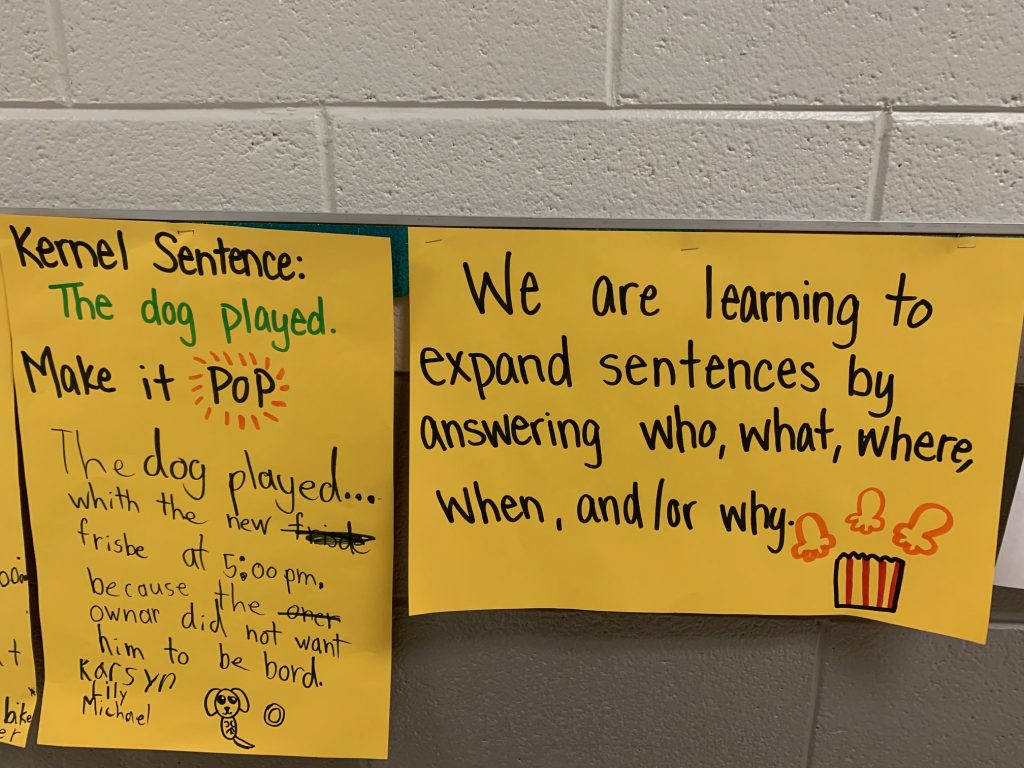 Kernel Sentence:
The dog played.
Make it PoP
The dog played...
whith the new
frisbe at 5:00pm.
because the oner
ownar did not want
him to be bord.
Karsyn
Lilly
Michael
We are learning to
expand sentences by
answering who, what, where,
when, and/or why.
bike
er